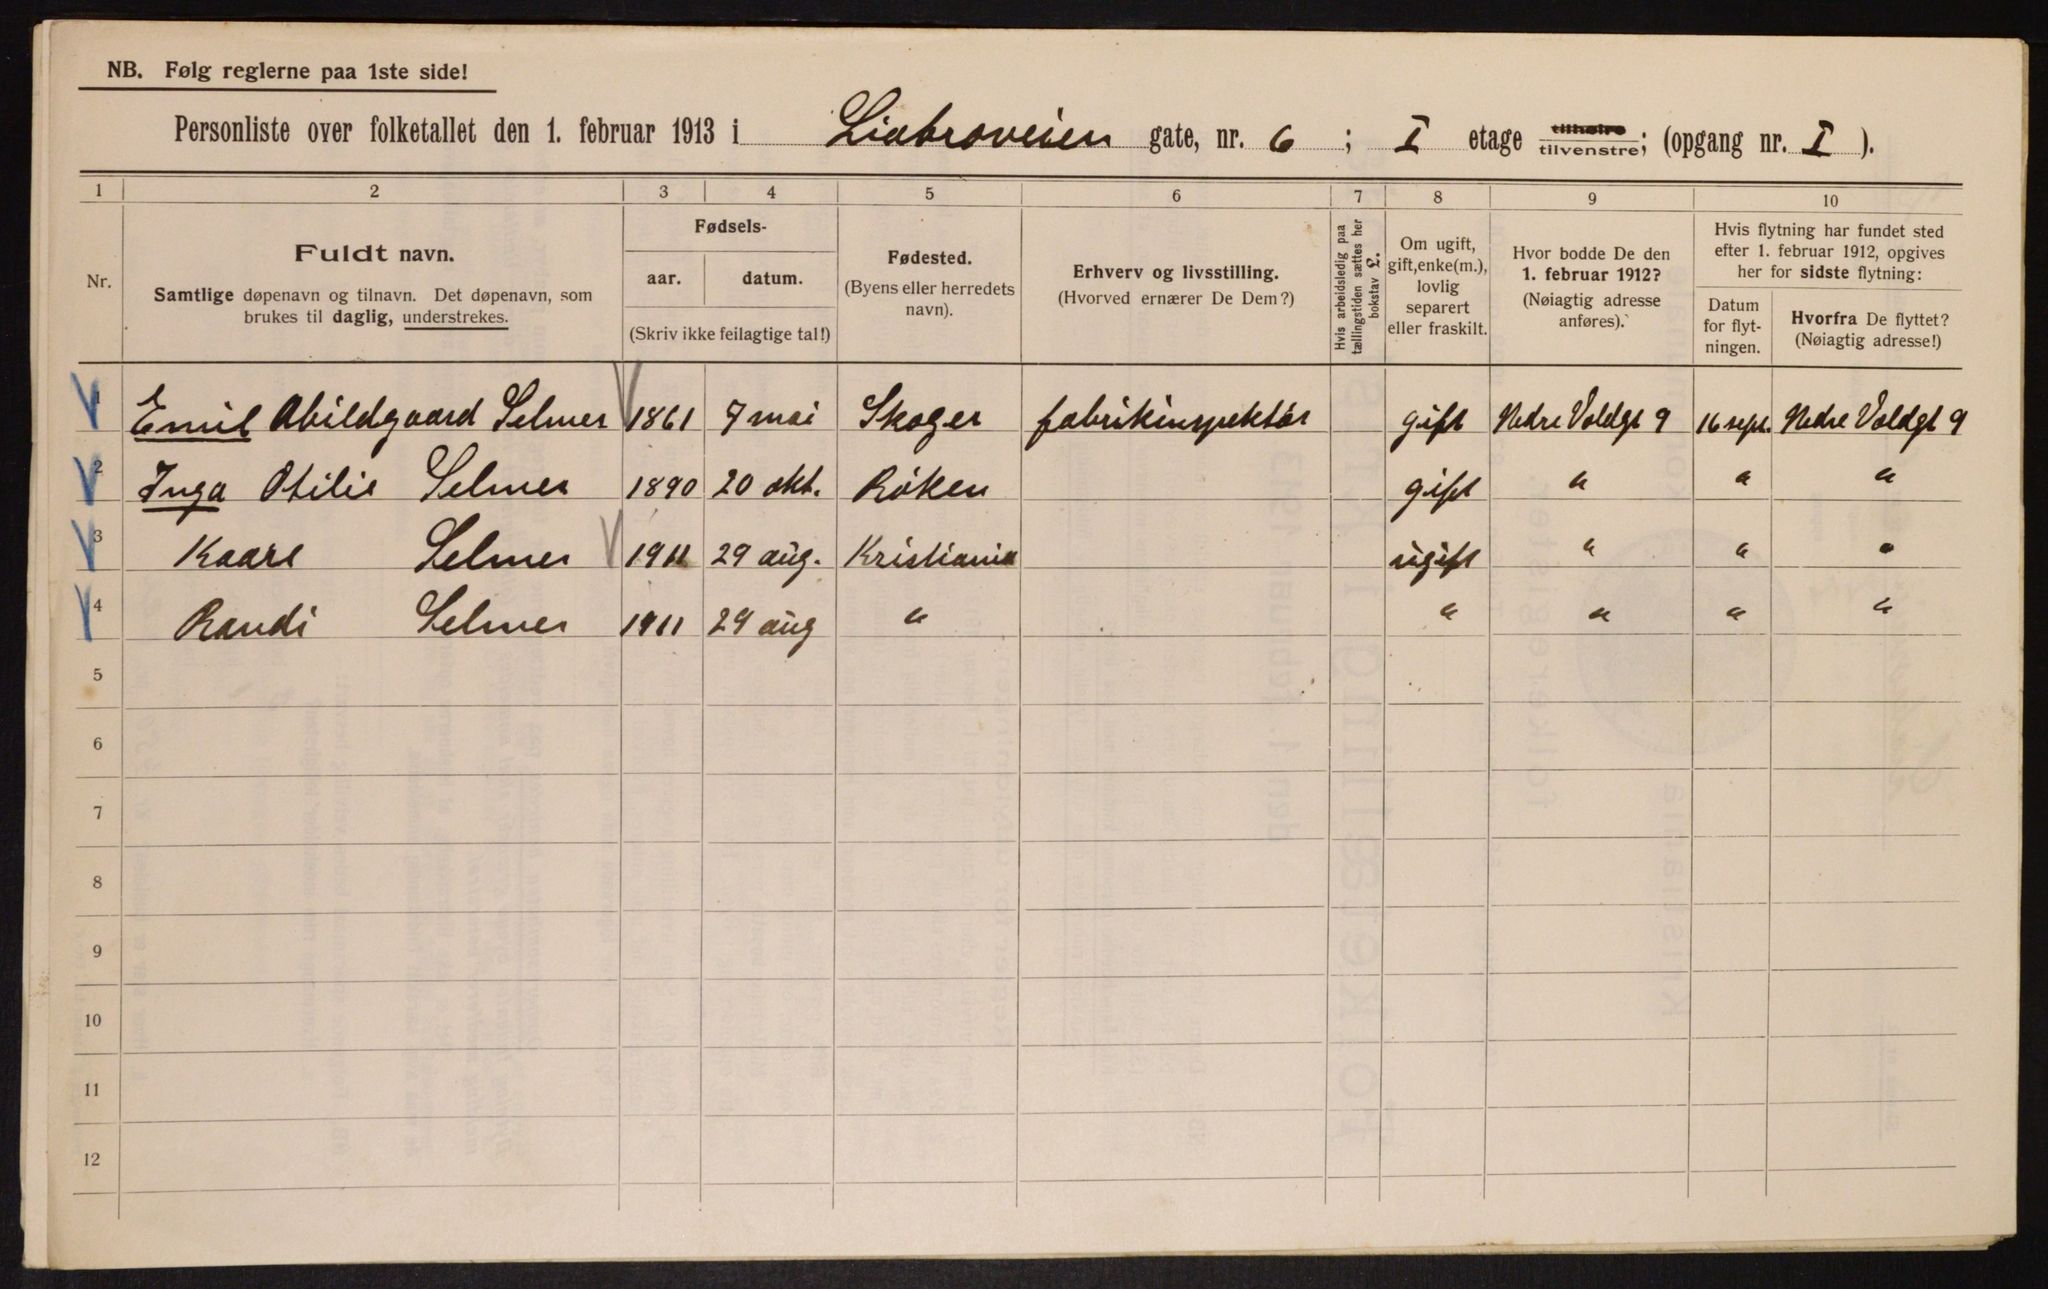 NB. Følg reglerne paa 1ste side!
Personliste over folketallet den 1. februar 1913 i Liabroveien gate, nr. 6 ; I etage tilhøire tilvenstre; (opgang nr. I ).
1 2 3 4 5 6 7 8 9 10
Nr.
Fuldt navn.
Samtlige døpenavn og tilnavn. Det døpenavn, som
brukes til daglig, understrekes.
Fødsels-
aar. datum.
(Skriv ikke feilagtige tal!)
Fødested.
(Byens eller herredets
navn).
Erhverv og livsstilling.
(Hvorved ernærer De Dem?)
Hvis arbeidsledig paa
tællingstiden sættes her
bokstav L.
Om ugift,
gift, enke(m.),
lovlig
separert
eller fraskilt.
Hvor bodde De den
1. februar 1912?
(Nøiagtig adresse
anføres).
Hvis flytning har fundet sted
efter 1. februar 1912, opgives
her for sidste flytning:
Datum
for flyt-
ningen.
Hvorfra De flyttet?
(Nøiagtig adresse!)
1 Emil Abildgaard Selmer 1861 7 mai Skoger fabrikinspektør gift Nedre Voldgt 9 16 sept. Nedre Voldgt 9
2 Inga Otilie Selmer 1890 20 okt. Röken gift " " "
3 Kaare Selmer 1911 29 aug. Kristiania ugift " " "
4 Randi Selmer 1911 29 aug " " " " "
5
6
7
8
9
10
11
12